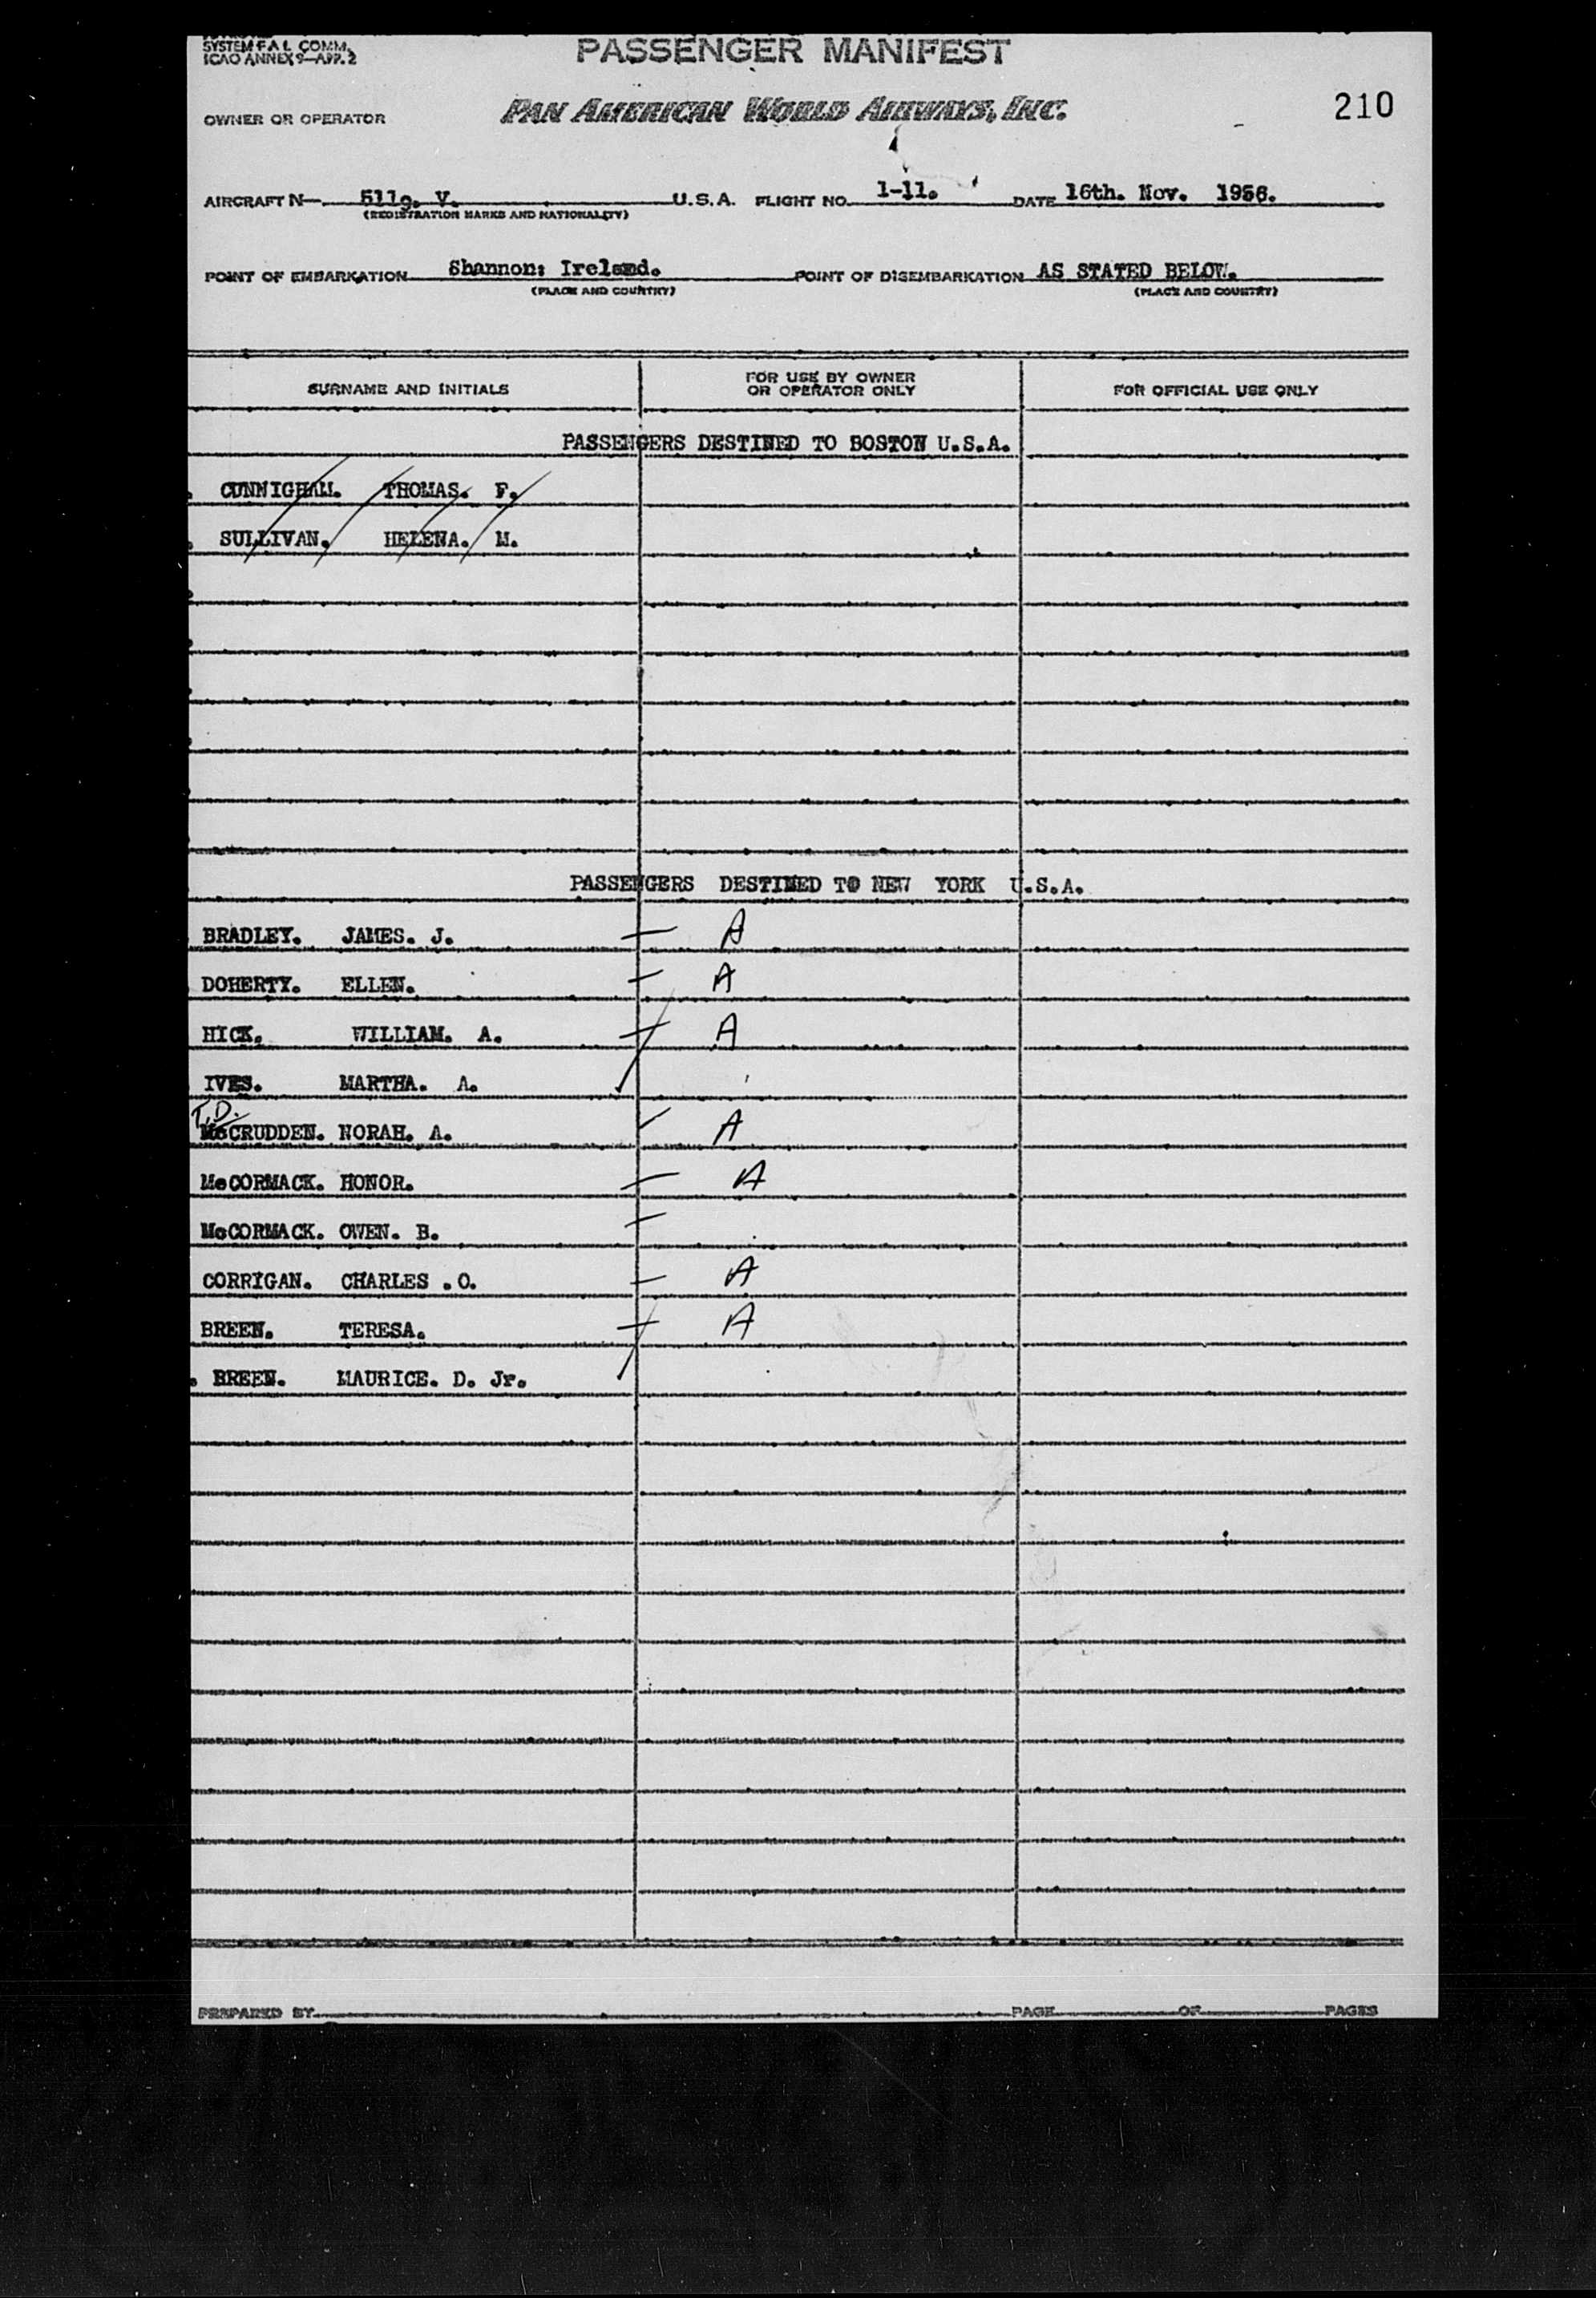 SYSTEM F A L COMM.
ICAO ANNEX 9—APP. 2
PASSENGER MANIFEST
OWNER OR OPERATOR
PAN AMERICAN WORLD AIRWAYS, INC.
210
AIRCRAFT N— 511g. V. U.S.A. FLIGHT NO. 1-11. DATE 16th. Nov. 1956.
(REGISTRATION MARKS AND NATIONALITY)
POINT OF EMBARKATION Shannon: Ireland. POINT OF DISEMBARKATION AS STATED BELOW.
(PLACE AND COUNTRY) (PLACE AND COUNTRY)
SURNAME AND INITIALS
FOR USE BY OWNER
OR OPERATOR ONLY
FOR OFFICIAL USE ONLY
PASSENGERS DESTINED TO BOSTON U.S.A.
CUNNIGHAM. THOMAS. F.
SULLIVAN. HELENA. M.
PASSENGERS DESTINED TO NEW YORK U.S.A.
BRADLEY. JAMES. J. — A
DOHERTY. ELLEN. — A
HICK. WILLIAM. A. — A
IVES. MARTHA. A.
T.D.
McCRUDDEN. NORAH. A. — A
McCORMACK. HONOR. — A
McCORMACK. OWEN. B. —
CORRIGAN. CHARLES .O. — A
BREEN. TERESA. — A
. BREEN. MAURICE. D. Jr.
PREPARED BY PAGE OF PAGES